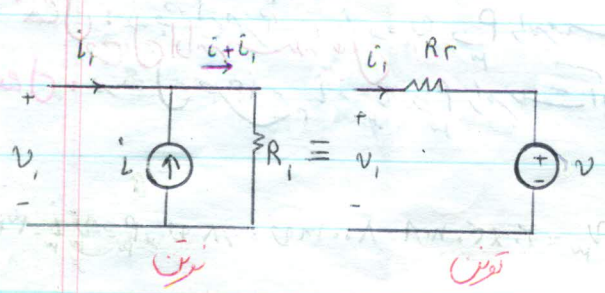 i₁
i+i₁
i₁
Rr
+
+
v₁
i
R₁
≡
v₁
+
-
v
-
-
نرتن
تونن